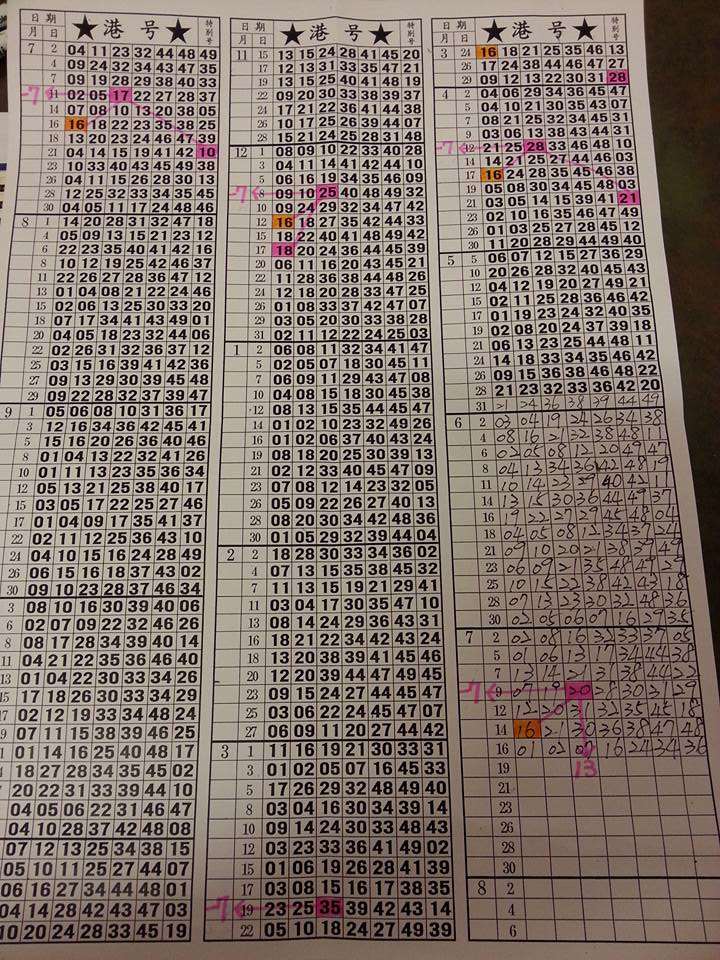 日 期 ★港 号★ 特別号
月 日
7 2 04 11 23 32 44 48 49
4 09 24 32 34 43 47 35
7 09 19 28 29 38 40 33
-7← 11 02 05 17 22 27 28 37
14 07 08 10 13 20 38 05
16 16 18 22 23 35 38 25
18 13 20 23 24 46 47 39
21 04 14 15 19 41 42 10
23 10 33 40 43 45 49 38
26 04 11 15 26 28 30 13
28 12 25 32 33 34 35 45
30 04 05 11 17 24 48 46
8 1 14 20 28 31 32 47 18
4 05 09 13 15 21 23 12
6 22 23 35 40 41 42 16
8 10 12 19 25 42 46 37
11 22 26 27 28 36 47 12
13 01 04 08 21 22 24 46
15 02 06 13 25 30 33 20
18 07 17 34 41 43 49 01
20 04 05 18 23 32 44 06
22 02 26 31 32 36 37 12
25 03 15 16 39 41 42 36
27 09 13 29 30 39 45 48
29 09 22 28 32 37 39 47
9 1 05 06 08 10 31 36 17
3 12 16 34 36 42 45 41
5 15 16 20 26 36 40 46
8 01 04 13 22 32 41 26
10 01 11 13 23 35 36 34
12 05 13 21 25 38 40 17
15 03 05 17 22 25 27 46
17 01 04 09 17 35 41 37
22 02 11 12 25 36 43 10
24 04 10 15 16 24 28 49
26 06 15 16 18 37 43 02
30 09 10 23 28 37 46 34
3 08 10 16 30 39 40 06
6 02 07 09 22 32 46 26
8 08 17 28 34 39 40 14
11 04 21 22 35 36 46 40
13 01 04 22 30 33 34 26
15 17 18 26 30 33 34 29
17 02 12 19 33 34 48 24
19 07 11 15 38 39 46 25
01 14 16 25 40 48 17
18 27 28 34 35 45 02
20 22 31 33 39 44 10
04 05 06 22 31 46 47
04 10 28 37 42 48 08
07 12 13 25 34 38 15
05 10 11 25 27 44 07
06 16 27 34 44 48 01
04 14 28 42 43 47 03
10 20 24 28 33 45 19
日 期 ★港 号★ 特別号
月 日
11 15 13 15 24 28 41 45 20
17 12 13 31 35 37 47 25
19 13 15 25 40 41 48 19
22 09 20 30 33 38 39 37
24 17 21 22 36 41 38 44
26 10 17 25 26 39 44 07
28 15 21 24 25 28 31 48
12 1 08 09 10 22 33 40 28
3 04 11 14 41 42 44 10
5 06 16 19 34 36 49 09
-7← 8 09 10 25 40 48 49 32
10 09 24 29 32 34 47 42
12 16 18 27 35 42 44 33
15 18 22 40 41 48 49 42
17 18 20 24 36 44 45 39
20 06 11 16 20 43 45 21
22 01 07 26 28 36 47 25
24 12 18 20 28 33 47 25
26 01 08 33 37 42 47 07
29 03 05 20 30 33 38 28
31 02 11 12 22 24 25 03
1 2 06 08 11 32 34 41 47
5 02 05 07 18 30 45 11
7 06 09 11 29 43 47 08
10 04 08 15 18 34 45 38
12 08 13 15 35 44 45 47
14 01 02 10 23 32 49 26
16 01 02 06 37 40 43 24
19 08 18 20 25 30 39 13
21 02 12 33 40 45 47 09
23 07 08 12 14 23 32 05
26 05 09 22 26 27 40 13
28 08 20 30 34 42 48 36
30 01 05 29 32 39 44 04
2 2 18 28 30 33 34 36 02
4 07 13 15 35 38 45 32
7 11 13 15 19 21 29 41
11 03 04 17 30 35 47 10
13 08 14 24 29 36 43 31
16 18 21 22 34 42 43 24
18 13 20 38 39 41 45 46
20 12 20 39 44 47 45 46
23 09 15 24 27 44 45 47
25 03 06 22 24 45 47 07
27 06 09 11 20 27 44 42
3 1 11 16 19 21 30 33 31
3 01 02 05 07 16 45 33
5 17 26 29 32 48 49 40
8 03 04 16 30 34 39 14
10 09 14 24 30 33 48 43
12 03 23 33 36 41 49 02
15 01 06 19 26 28 41 39
17 03 08 15 16 17 38 35
-7← 19 23 25 35 39 42 43 14
22 05 10 18 24 27 49 39
日 期 ★港 号★ 特別号
月 日
3 24 16 18 21 25 35 46 13
26 17 24 38 44 46 47 27
29 09 12 13 22 30 31 28
4 2 04 06 29 34 36 45 47
5 04 10 21 30 35 43 07
7 08 21 25 32 34 45 31
9 03 06 13 38 43 44 31
-7← 12 21 25 28 33 46 48 10
14 14 21 25 27 44 46 03
17 16 24 28 35 45 46 38
19 05 08 30 34 45 48 03
21 03 05 14 15 39 41 21
23 02 10 16 35 46 47 49
26 01 03 25 27 28 45 12
30 11 20 28 29 44 49 40
5 5 06 07 12 15 27 36 29
10 20 26 28 32 40 45 43
12 04 12 19 20 27 49 21
15 02 11 25 28 36 46 42
17 01 19 23 24 32 40 35
19 02 08 20 24 37 39 18
21 06 13 23 25 44 48 11
24 14 18 33 34 35 46 42
26 09 15 36 38 46 48 22
28 21 23 32 33 36 42 20
31 21 24 36 38 39 44 49
6 2 03 04 19 24 26 34 38
4 08 16 21 32 38 48 11
6 02 05 08 12 20 49 47
8 04 13 34 36 42 48 19
11 10 14 23 29 40 42 11
14 13 15 30 36 44 49 37
16 19 22 27 29 45 48 04
18 04 05 08 12 34 37 24
21 09 10 20 21 38 39 49
23 06 09 21 35 48 49 29
25 10 15 22 38 42 43 18
28 07 13 23 30 32 48 36
30 02 05 06 07 16 27 35
7 2 02 08 16 32 33 37 05
5 01 06 13 17 34 44 38
7 13 14 21 31 38 44 22
-7← 9 07 19 20 28 30 31 29
12 12 20 31 32 35 45 18
14 16 21 30 36 38 47 48
16 01 02 09 16 24 34 36
19 13
21
23
26
28
30
8 2
4
6